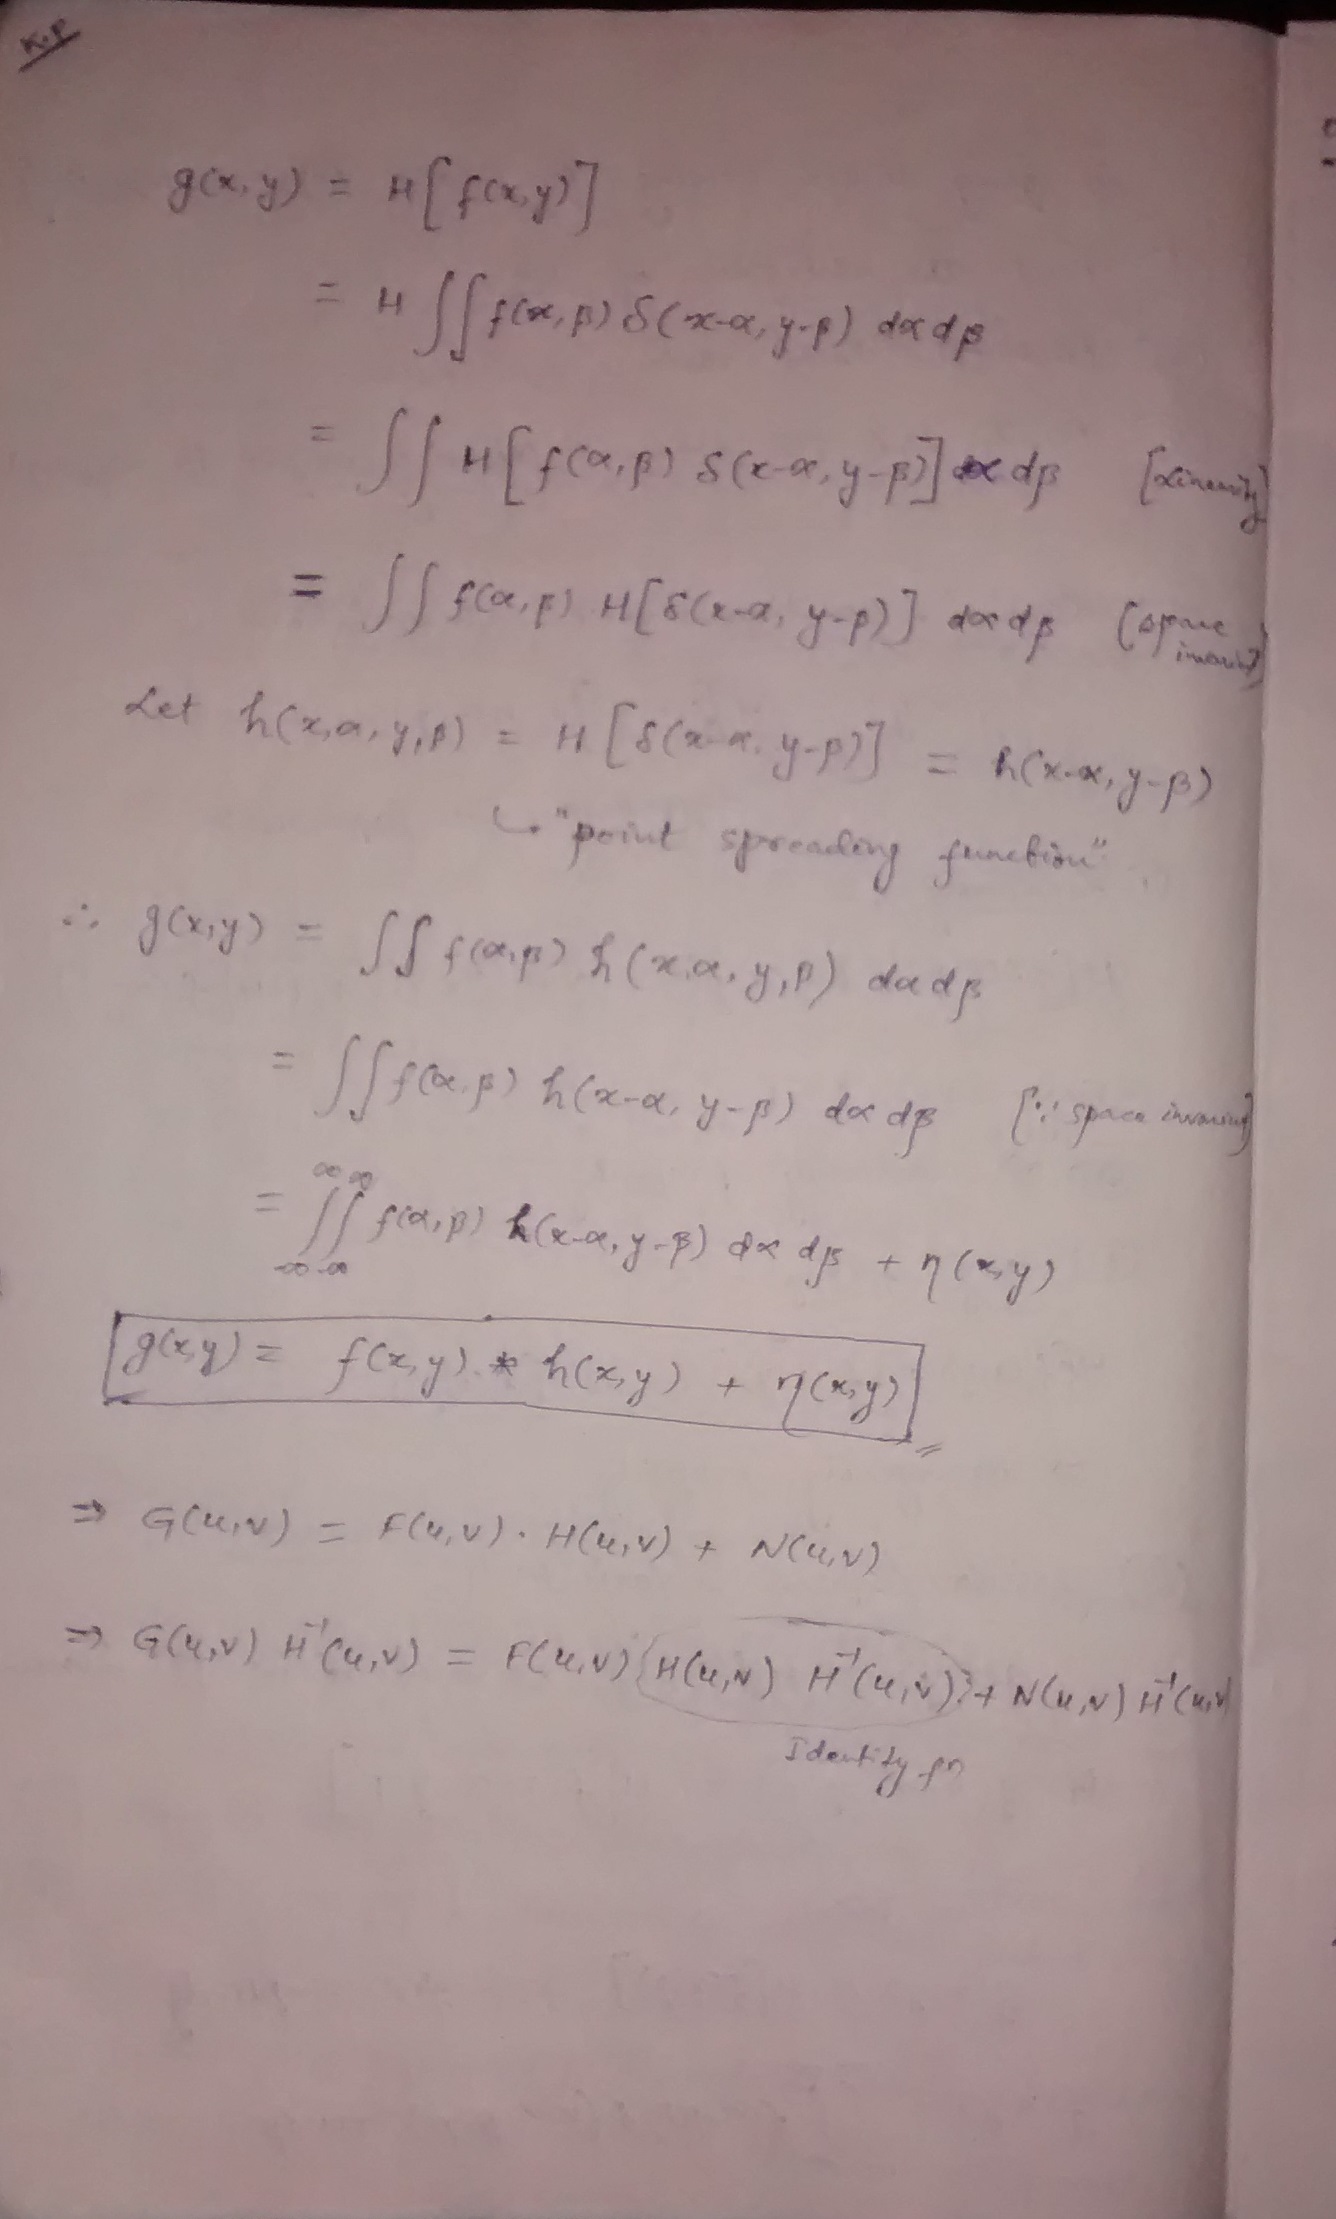 g(x,y) = H[f(x,y)]
= H ∬ f(α,β) δ(x-α, y-β) dα dβ
= ∬ H[f(α,β) δ(x-α, y-β)] dα dβ [Linearity]
= ∬ f(α,β) H[δ(x-α, y-β)] dα dβ (space
Let h(x,α,y,β) = H[δ(x-α, y-β)] = h(x-α, y-β)
↳ "point spreading function"
∴ g(x,y) = ∬ f(α,β) h(x,α,y,β) dα dβ
= ∬ f(α,β) h(x-α, y-β) dα dβ [∵ space
= ∬_{-∞ -∞}^{∞ ∞} f(α,β) h(x-α, y-β) dα dβ + η(x,y)
g(x,y) = f(x,y) * h(x,y) + η(x,y)
⇒ G(u,v) = F(u,v) · H(u,v) + N(u,v)
⇒ G(u,v) H⁻¹(u,v) = F(u,v) {H(u,v) H⁻¹(u,v)} + N(u,v) H⁻¹(u,v)
Identity fn